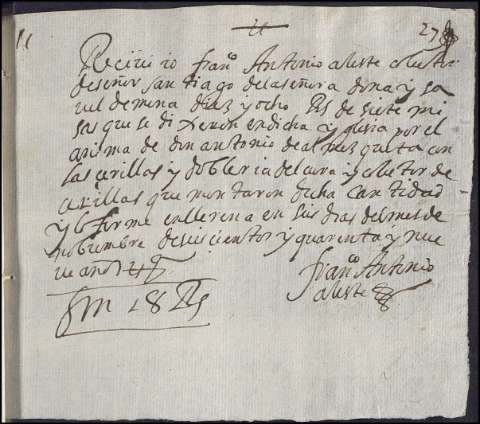 27
Recivi io fran^co Antonio aleste coletor
de señor santiago de la señora dona ysa
vel de mena diez y ocho Rs de siete mi
sas que se dixeron en dicha yglesia por el
anima de don antonio de
las cirillas y dobleria del cura y coletor de
cirillas que montaron dicha cantidad
y lo firme en llerena en seis dias del mes de
nobiembre de seiscientos y quarenta y nue
ve años
fran^co Antonio
aleste
18 Rs